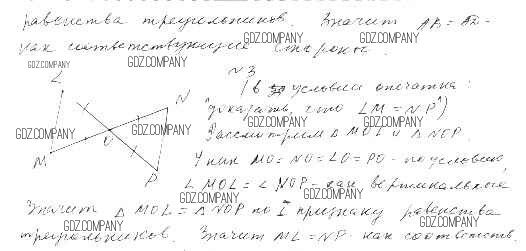 равенства треугольников. Значит AB = AD -
как соответствующие стороны.
GDZ.COMPANY GDZ.COMPANY
L GDZ.COMPANY
N3
(в условии опечатка:
GDZ.COMPANY
"доказать, что LM = NP")
N
GDZ.COMPANY GDZ.COMPANY GDZ.COMPANY
O
Рассмотрим △ MOL и △ NOP.
У них MO = NO = LO = PO - по условию,
M
GDZ.COMPANY GDZ.COMPANY
P
∠ MOL = ∠ NOP - как вертикальные
GDZ.COMPANY GDZ.COMPANY
Значит △ MOL = △ NOP по I признаку равенства
GDZ.COMPANY GDZ.COMPANY
треугольников. Значит ML = NP как соответств